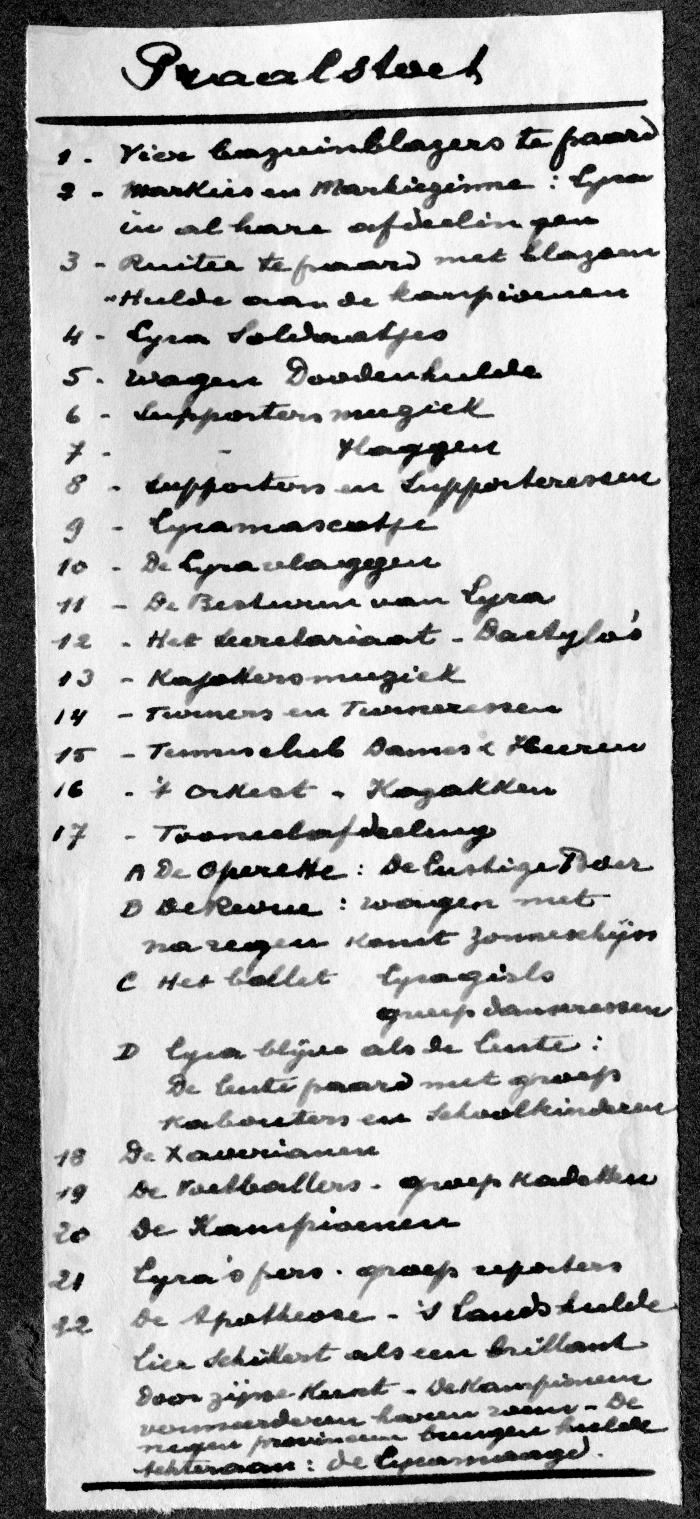 Praalstoet
1 - Vier bazuinblazers te paard
2 - Markies en Markiezinne : Lyra
in al hare afdeelingen
3 - Ruiter te paard met blazoen
"Hulde aan de kampioenen
4 - Lyra Soldaatjes
5 - Wagen Doodenhulde
6 - Supportersmuziek
7 - - Vlaggen
8 - Supporters en Supporteressen
9 - Lyramascotje
10 - De Lyravlaggen
11 - De Besturen van Lyra
12 - Het Secretariaat - Dactylo's
13 - Kajotkersmuziek
14 - Turners en Turneressen
15 - Tennisclub Dames & Heeren
16 - 't Orkest - Kozakken
17 - Tooneelafdeeling
A De Operette : De Lustige Boer
B De Revue : wagen met
na regen komt zonneschijn
C Het ballet Lyragirls
groep danseressen
D Lyra blijve als de Lente :
De Lente paard met groep
Kabouters en Schoolkinderen
18 De Xaverianen
19 De Voetballers - groep Kadetten
20 De Kampioenen
21 Lyra's pers - groep reporters
22 De Apotheose - 's Lands hulde
Lier schittert als een brillant
door zijne Kunst - De Kampioenen
vermeerderen haren roem - De
negen provincien brengen hulde
Achteraan : de Lyramaagd.